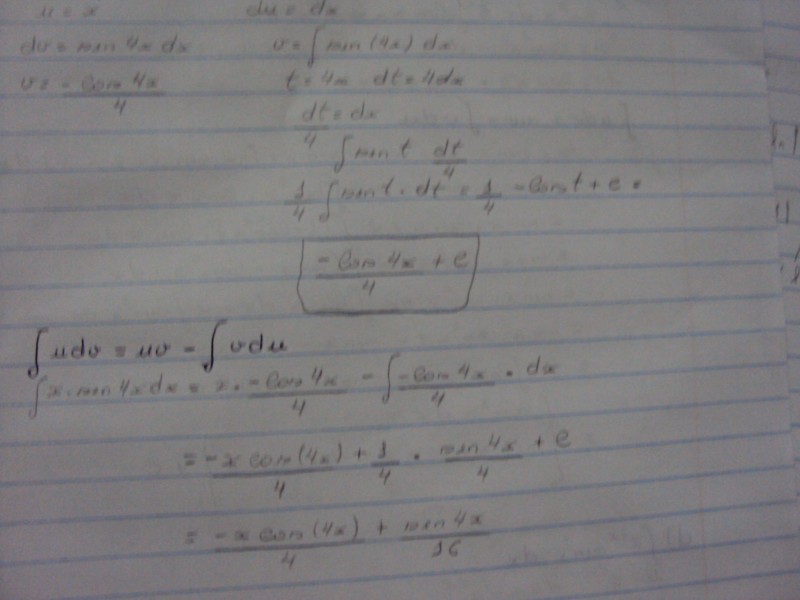 u = x du = dx
dv = sen 4x dx v = ∫ sen (4x) dx
v = -cos 4x/4 t = 4x dt = 4dx
dt/4 = dx
∫ sen t dt/4
1/4 ∫ sen t · dt = 1/4 -cos t + c =
-cos 4x/4 + c
∫ u dv = uv - ∫ v du
∫ x · sen 4x dx = x · -cos 4x/4 - ∫ -cos 4x/4 · dx
= -x cos (4x)/4 + 1/4 · sen 4x/4 + c
= -x cos (4x)/4 + sen 4x/16